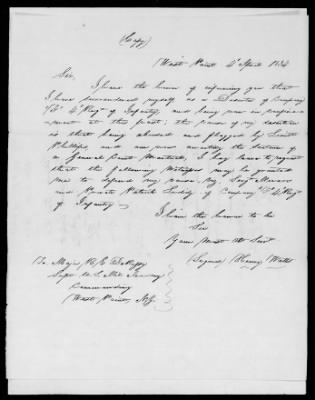 (Copy)
West Point 4th April 1834
Sir,
I have the honor of informing you that
I have surrendered myself as a Deserter of Company
"F" 4th Regt of Infantry, and being now in confine-
ment at this post; the reason of my desertion
is that being abused and flogged by Lieut
Phillips, and am now awaiting the decision of
a General Court Martial, I beg leave to request
that the following Witnesses may be granted
me to defend my cause. viz. Sergt
and Private Patrick of Company "F" 4th Regt
of Infantry
I have the honor to be
Sir
Your Most Obt Servt
(Signed) Henry Watts
To Major R. E. DeRussy
Supt. U. S. Mil. Academy
Commanding
West Point, N.Y.